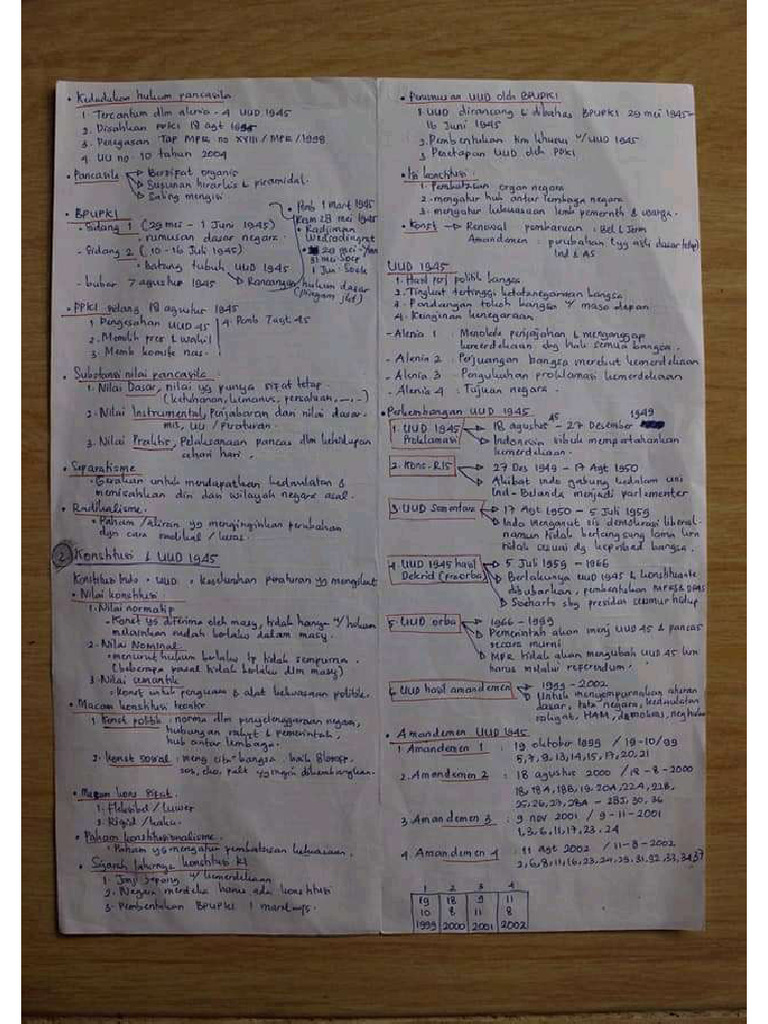 • Kedudukan hukum pancasila
1. Tercantum dlm alenia-4 UUD 1945
2. Disahkan PPKI 18 Agt 1945
3. Penegasan Tap MPR no XVIII / MPR / 1998
4. UU no. 10 tahun 2004
• Pancasila → Bersifat organis
→ Susunan hirarkis & piramidal
→ Saling mengisi
• BPUPKI
- Sidang 1 (29 mei - 1 Juni 1945)
- rumusan dasar negara
- Sidang 2 (10 - 16 Juli 1945)
- Batang tubuh UUD 1945
→ Rancangan hukum dasar
- bubar 7 agustus 1945
• Pemb 1 Mart 1945
Resm 28 mei 1945
• Radjiman
Wediodingrat
• 29 mei - Yamin
31 mei Soep
1 Jun - Soek
• PPKI sidang 18 agustus 1945
1. Pengesahan UUD 45
2. Memilih pres & wakil
3. Memb komite nas.
4. Pemb
• Substansi nilai pancasila
1. Nilai Dasar, nilai yg punya sifat tetap
(ketuhanan, kemanus, persatuan, —. —.)
2. Nilai Instrumental, Penjabaran dari nilai dasar.
UU / Peraturan.
3. Nilai Praktis, Pelaksanaan pancas dlm kehidupan
sehari hari.
• Separatisme
• Gerakan untuk mendapatkan kedaulatan &
memisahkan diri dari wilayah negara asal.
• Radikalisme
• Paham / aliran yg menginginkan perubahan
dgn cara radikal / keras.
2. Konstitusi & UUD 1945
Konstitusi Indo = UUD = Keseluruhan peraturan yg mengikat
• Nilai konstitusi
1. Nilai normatif
- Konst yg diterima oleh masy, tidak hanya hukum
melainkan sudah berlaku dalam masy.
2. Nilai Nominal
- menurut hukum berlaku tp tidak sempurna
(beberapa pasal tidak berlaku dlm masy)
3. Nilai semantik
- Konst untuk penguasa & alat kekuasaan politik.
• Macam konstitusi teori
1. Konst politik : norma dlm penyelenggaraan negara,
hubungan rakyat & pemerintah,
hub antar lembaga.
2. Konst sosial : meng cita² bangsa,
sos, eko, polit yg ingin dikembangkan.
• Macam kons sifat
1. Fleksibel / luwes
2. Rigid / kaku
• Paham konstitusionalisme
- Paham yg mengatur pembatasan kekuasaan.
• Sejarah lahirnya konstitusi RI
1. Janji jepang kemerdekaan
2. Negara merdeka harus ada konstitusi
3. Pembentukan BPUPKI 1 maret 1945.
• Perumusan UUD oleh BPUPKI
1. UUD dirancang & dibahas BPUPKI 29 mei 1945 -
16 Juni 1945
2. Pembentukan tim khusus UUD 1945
3. Penetapan UUD oleh PPKI
• Isi konstitusi
1. Pembatasan organ negara
2. mengatur hub antar lembaga negara
3. mengatur kekuasaan lemb pemernth & warga.
• Konst → Renewal pembaruan : Bel & Jerm
Amandemen : perubahan (yg asli dasar tetap)
Ind & AS
UUD 1945
1. Hasil perj politik bangsa
2. Tingkat tertinggi ketatanegaraan bangsa
3. Pandangan tokoh bangsa masa depan
4. Keinginan kenegaraan
- Alenia 1 : Menolak penjajahan & menganggap
kemerdekaan dg hak semua bangsa.
- Alenia 2 : Perjuangan bangsa merebut kemerdekaan
- Alenia 3 : Pengukuhan proklamasi kemerdekaan
- Alenia 4 : Tujuan negara.
• Perkembangan UUD 1945
1. UUD 1945 Proklamasi → 18 agustus 45 - 27 Desember 1949
→ Indonesia sibuk mempertahankan
kemerdekaan.
2. Kons. RIS → 27 Des 1949 - 17 Agt 1950
→ Akibat indo gabung kedalam uni
Ind-Belanda menjadi parlementer
3. UUD Sementara → 17 Agt 1950 - 5 Juli 1959
→ Indo menganut sis demokrasi liberal.
namun tidak berlangsung lama krn
tidak sesuai dg kepribad bangsa.
4. UUD 1945 hasil Dekrid (pra orba) → 5 Juli 1959 - 1966
→ Berlakunya UUD 1945 & konstituante
dibubarkan, pembentukan MPRS & DPAS
→ Soeharto sbg presiden seumur hidup
5. UUD orba → 1966 - 1999
→ Pemerintah akan menj UUD 45 & pancas
secara murni
→ MPR tidak akan mengubah UUD 45 krn
harus melalui referendum.
6. UUD hasil amandemen → 1999 - 2002
→ Untuk menyempurnakan aturan
dasar, tata negara, kedaulatan
rakyat, HAM, demokras, neg hukum
• Amandemen UUD 1945
1. Amandemen 1 : 19 oktober 1999 / 19-10/99
5,7,9,13,14,15,17,20,21
2. Amandemen 2 : 18 agustus 2000 / 18-8-2000
18, 18A, 18B, 19, 20A, 22A, 22B,
25, 26, 27, 28A - 28J, 30, 36
3. Amandemen 3 : 9 nov 2001 / 9-11-2001
1,3,6,11,17,23,24
4. Amandemen 4 : 11 Agt 2002 / 11-8-2002
2,6,8,11,16,23,24,29,31,32,33,34,37
1 2 3 4
19 18 9 11
10 8 11 8
1999 2000 2001 2002